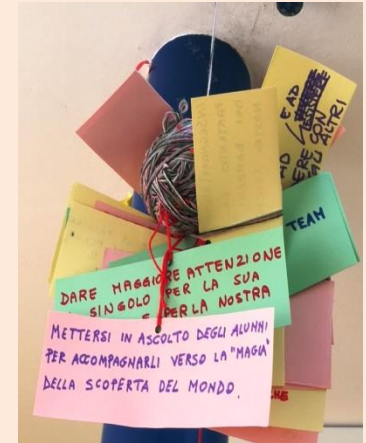 E AD
ERE CON
GLI ALTRI
TEAM
DARE MAGGIORE ATTENZIONE
SINGOLO PER LA SUA
E PER LA NOSTRA
METTERSI IN ASCOLTO DEGLI ALUNNI
PER ACCOMPAGNARLI VERSO LA "MAGIA"
DELLA SCOPERTA DEL MONDO.
HE